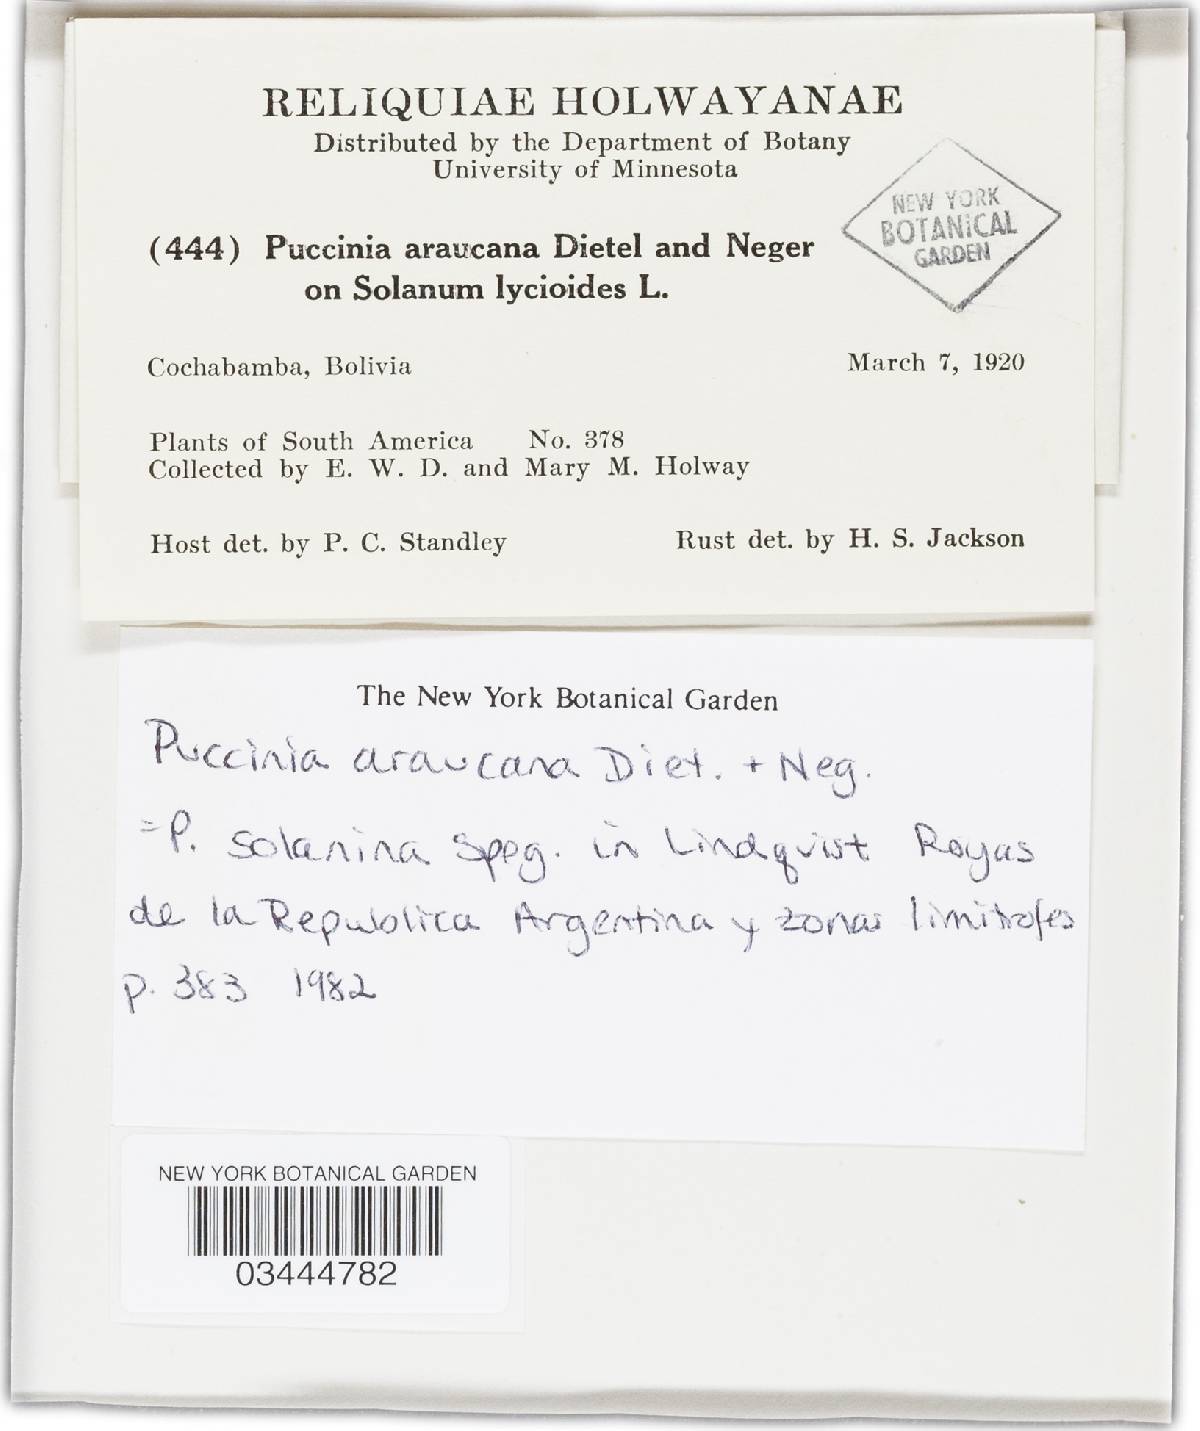 RELIQUIAE HOLWAYANAE
Distributed by the Department of Botany
University of Minnesota
NEW YORK
BOTANICAL
GARDEN
(444) Puccinia araucana Dietel and Neger
on Solanum lycioides L.
Cochabamba, Bolivia March 7, 1920
Plants of South America No. 378
Collected by E. W. D. and Mary M. Holway
Host det. by P. C. Standley Rust det. by H. S. Jackson
The New York Botanical Garden
Puccinia araucana Diet. + Neg.
= P. solanina Speg. in Lindquist Royas
de la Republica Argentina y zonas limitrofes
p. 383 1982
NEW YORK BOTANICAL GARDEN
03444782